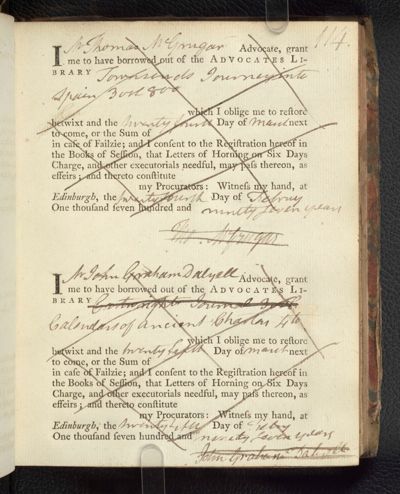 114.
I Mr Thomas McGrugar Advocate, grant
me to have borrowed out of the ADVOCATES LI-
BRARY Townsends Journey into
Spain 3 vol 8vo
which I oblige me to reſtore
betwixt and the twenty fourth Day of March next
to come, or the Sum of
in caſe of Failzie; and I conſent to the Regiſtration hereof in
the Books of Seſſion, that Letters of Horning on Six Days
Charge, and other executorials needful, may paſs thereon, as
effeirs; and thereto conſtitute
my Procurators: Witneſs my hand, at
Edinburgh, the twenty fourth Day of Febry
One thouſand ſeven hundred and ninety seven years
Tho. McGrugar
I Mr John Graham Dalyell Advocate, grant
me to have borrowed out of the ADVOCATES LI-
BRARY Journal
Calendars of Ancient Charters 4to
which I oblige me to reſtore
betwixt and the twenty sixth Day of March next
to come, or the Sum of
in caſe of Failzie; and I conſent to the Regiſtration hereof in
the Books of Seſſion, that Letters of Horning on Six Days
Charge, and other executorials needful, may paſs thereon, as
effeirs; and thereto conſtitute
my Procurators: Witneſs my hand, at
Edinburgh, the twenty sixth Day of Febry
One thouſand ſeven hundred and ninety seven years
John Graham Dalyell